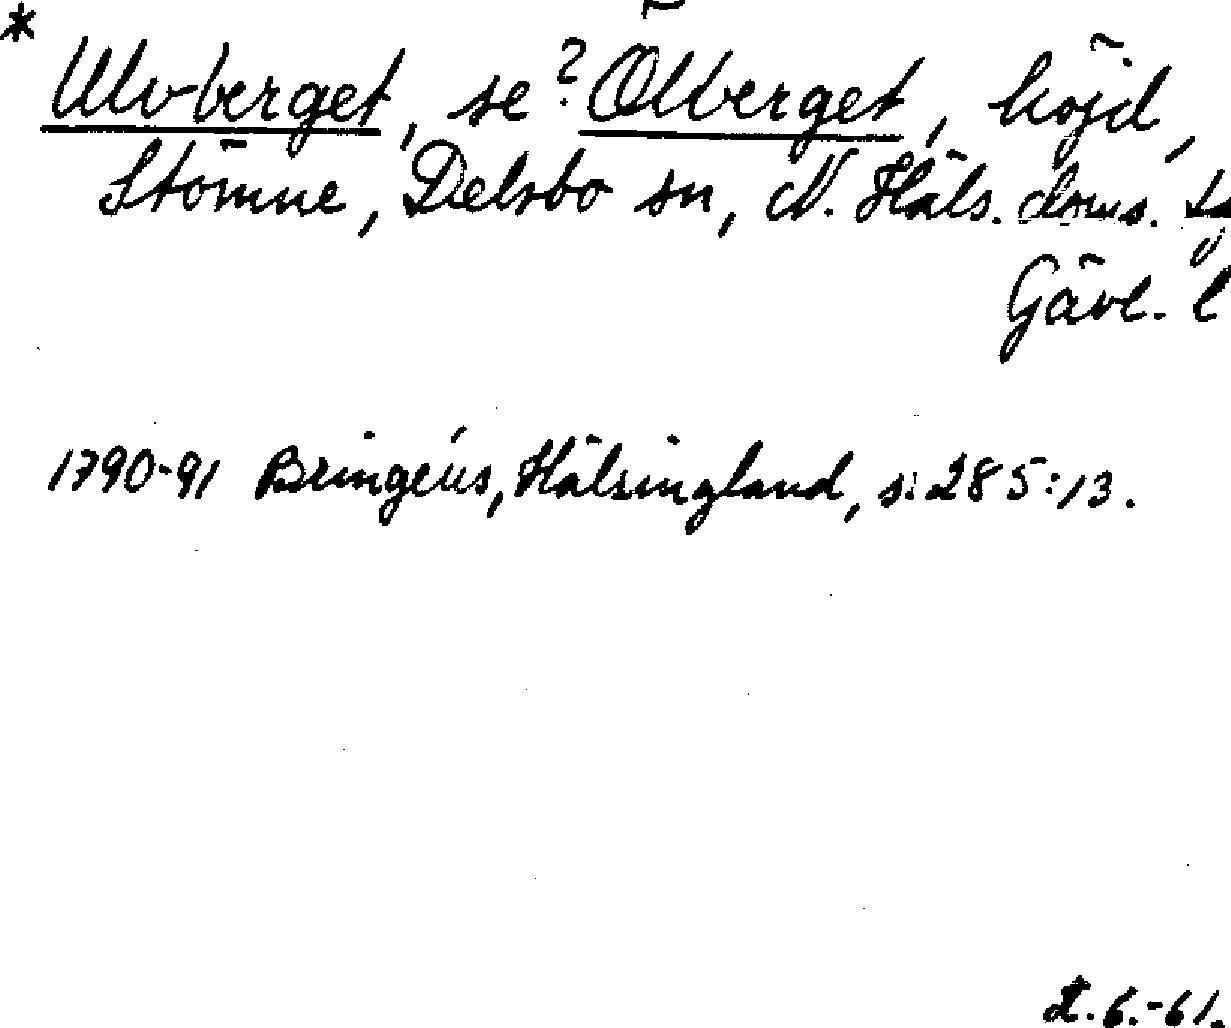 * Ulvberget, se ? Ölberget, höjd,
Stömne, Delsbo sn, N. Häls. doms. tg
Gävl. l
1790-91 Bringéus, Hälsingland, s. 285:13.
2.6.-61.